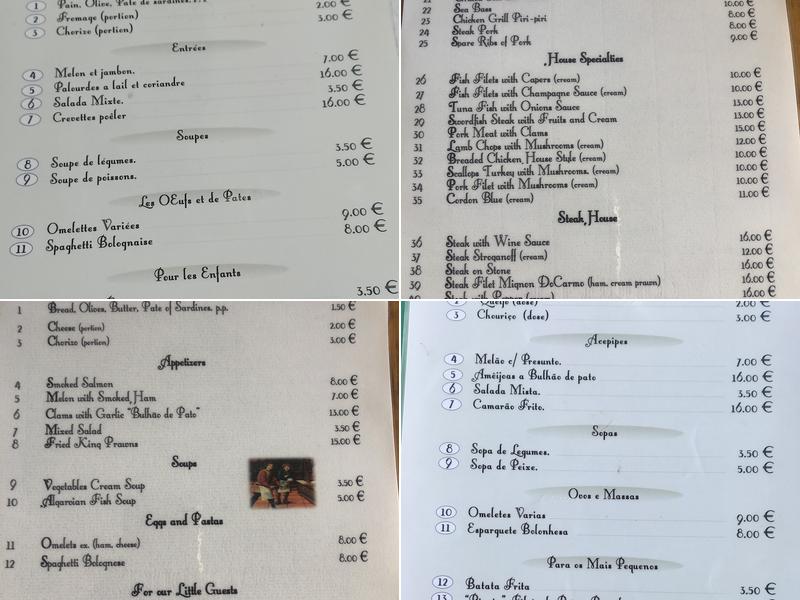 1 Pain, Olive, Pate de sardines, p.p.
2 Fromage (portion) 2.00 €
3 Chorizo (portion) 3.00 €
Entrées
4 Melon et jambon. 7.00 €
5 Palourdes a lail et coriandre 16.00 €
6 Salada Mixte. 3.50 €
7 Crevettes poêler 16.00 €
Soupes
8 Soupe de légumes. 3.50 €
9 Soupe de poissons. 5.00 €
Les OEufs et de Pates
10 Omelettes Variées 9.00 €
11 Spaghetti Bolognaise 8.00 €
Pour les Enfants
3.50 €
22 Sea Bass 10.00 €
23 Chicken Grill Piri-piri 8.00 €
24 Steak Pork 8.00 €
25 Spare Ribs of Pork 9.00 €
House Specialties
26 Fish Filets with Capers (cream) 10.00 €
27 Fish Filets with Champagne Sauce (cream) 10.00 €
28 Tuna Fish with Onions Sauce 13.00 €
29 Swordfish Steak with Fruits and Cream 13.00 €
30 Pork Meat with Clams 15.00 €
31 Lamb Chops with Mushrooms (cream) 12.00 €
32 Breaded Chicken House Style (cream) 10.00 €
33 Scallops Turkey with Mushrooms. (cream) 10.00 €
34 Pork Filet with Mushrooms (cream) 10.00 €
35 Cordon Blue (cream) 11.00 €
Steak House
36 Steak with Wine Sauce 16.00 €
37 Steak Stroganoff (cream) 12.00 €
38 Steak on Stone 16.00 €
39 Steak Filet Mignon DoCarmo (ham, cream prawn) 16.00 €
40 Steak with Pepper (cream) 16.00 €
1 Bread, Olices, Butter, Pate of Sardines, p.p. 1.50 €
2 Cheese (portion) 2.00 €
3 Chorizo (portion) 3.00 €
Appetizers
4 Smoked Salmon 8.00 €
5 Melon with Smoked Ham 7.00 €
6 Clams with Garlic "Bulhão de Pato" 13.00 €
7 Mixed Salad 3.50 €
8 Fried King Prawns 15.00 €
Soups
9 Vegetables Cream Soup 3.50 €
10 Algarvian Fish Soup 5.00 €
Eggs and Pastas
11 Omelets ex. (ham, cheese) 8.00 €
12 Spaghetti Bolognese 8.00 €
For our Little Guests
2 Queijo (dose) 2.00 €
3 Chouriço (dose) 3.00 €
Acepipes
4 Melão c/ Presunto. 7.00 €
5 Amêijoas a Bulhão de pato 16.00 €
6 Salada Mista. 3.50 €
7 Camarão Frito. 16.00 €
Sopas
8 Sopa de Legumes. 3.50 €
9 Sopa de Peixe. 5.00 €
Ovos e Massas
10 Omeletes Varias 9.00 €
11 Esparguete Bolonhesa 8.00 €
Para os Mais Pequenos
12 Batata Frita 3.50 €
13